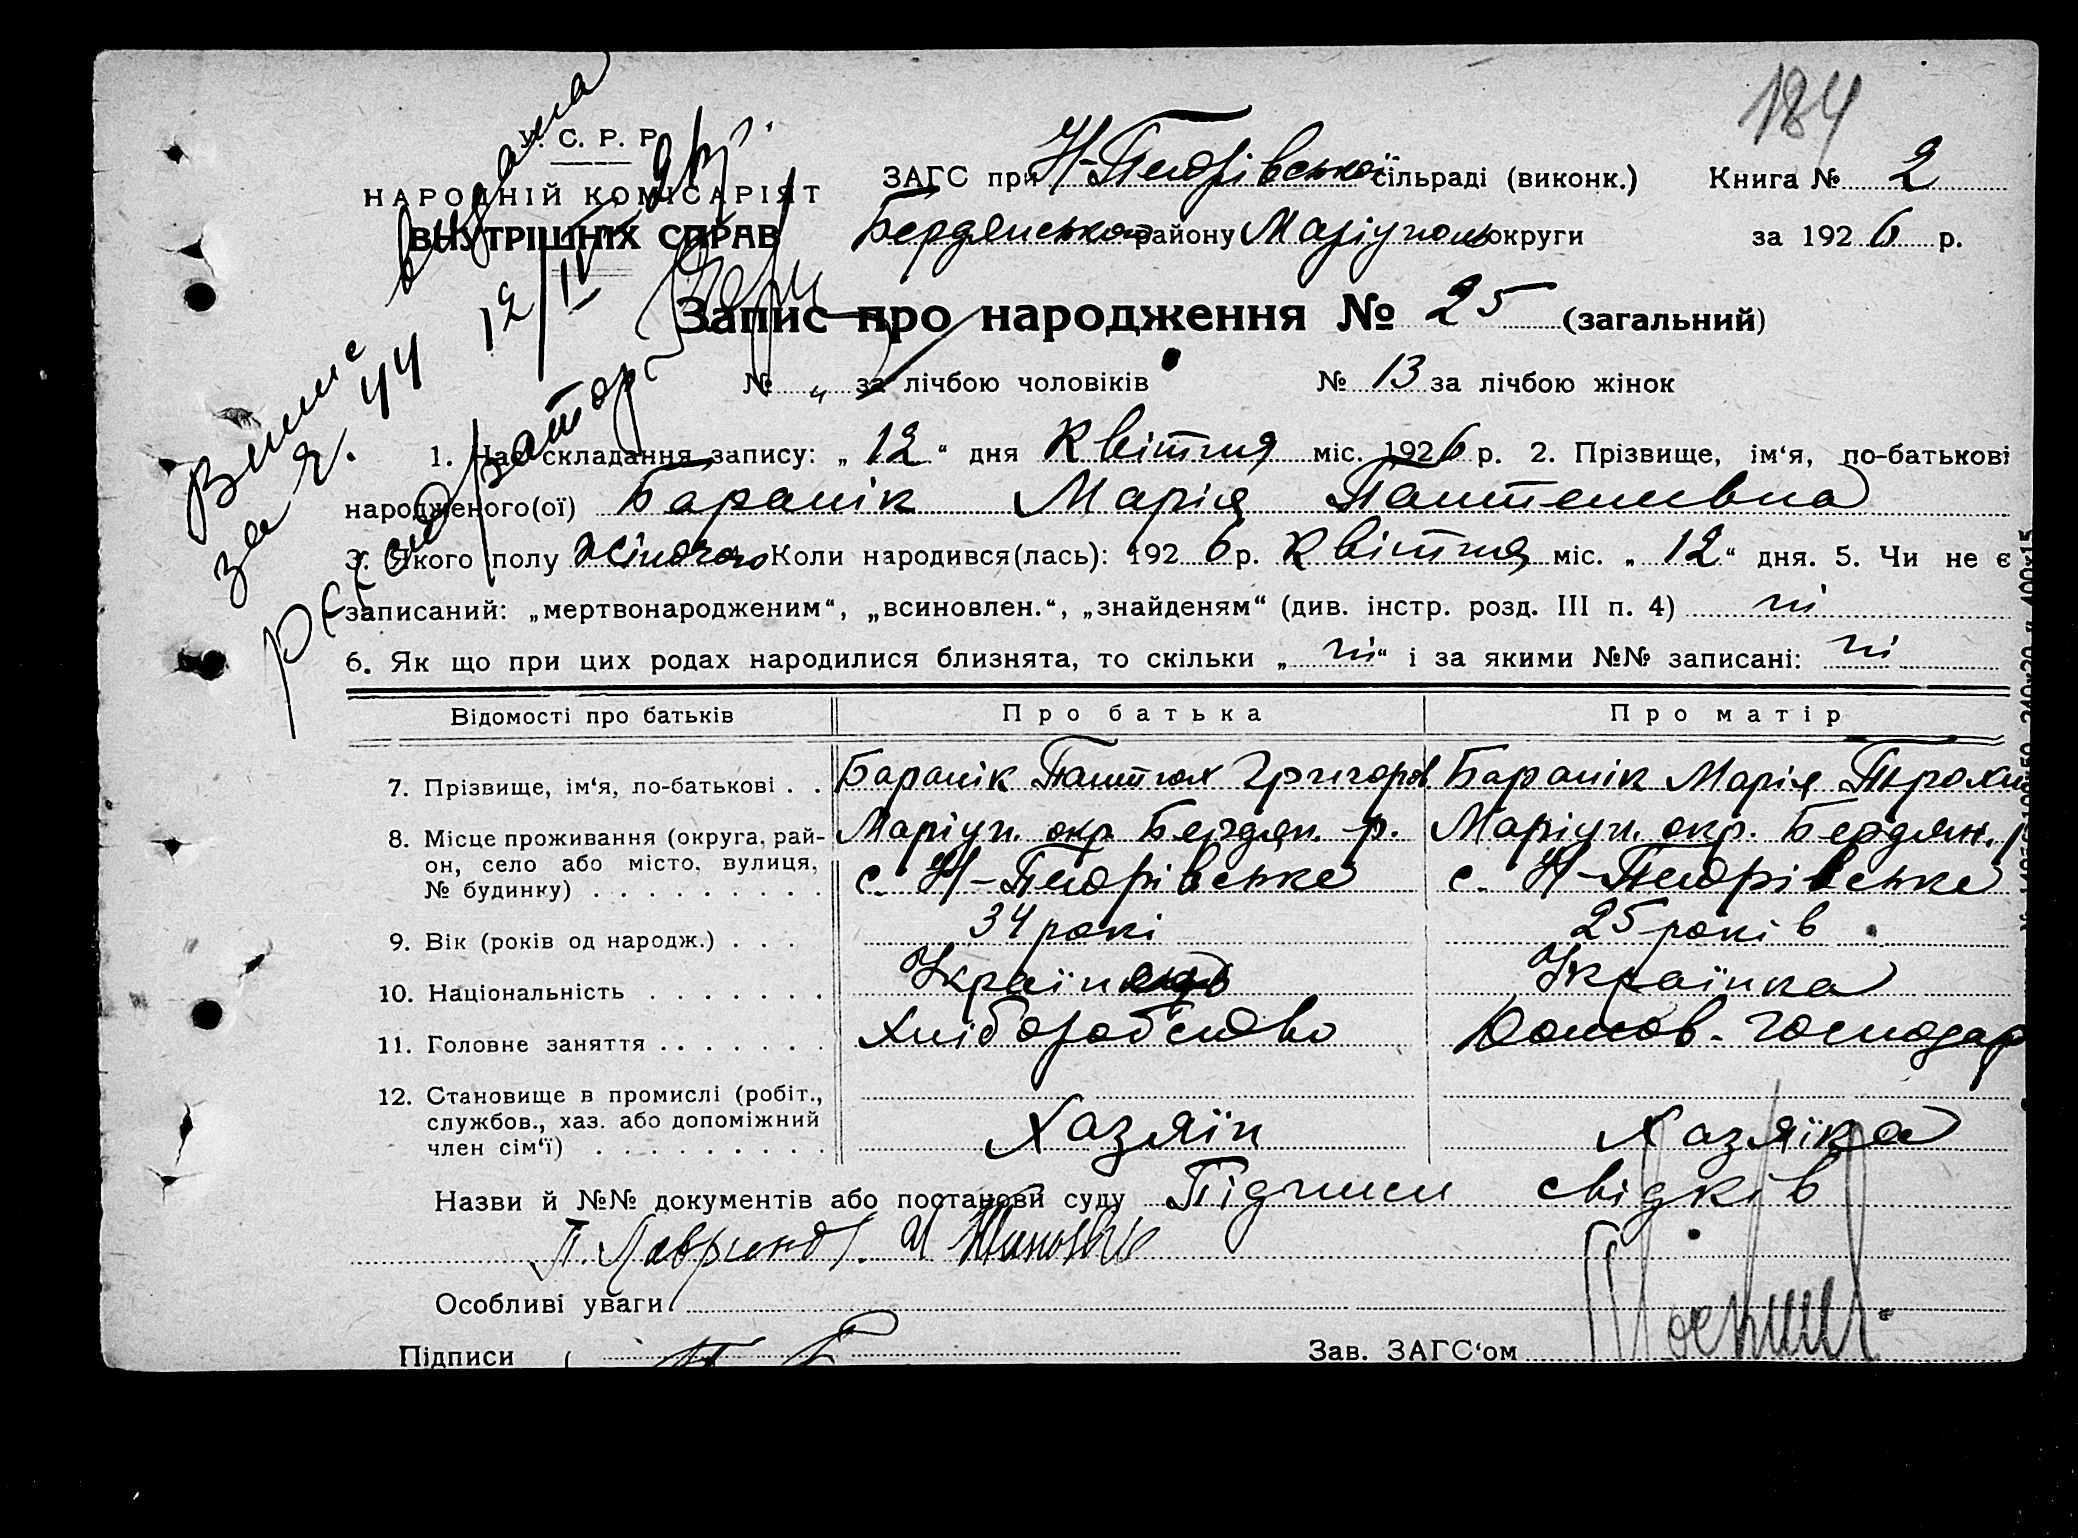 184
У. С. Р. Р.
НАРОДНІЙ КОМІСАРІЯТ
ВНУТРІШНІХ СПРАВ
ЗАГС при Н-Петрівської сільраді (виконк.) Книга № 2
Бердянського району Маріупол. округи за 1926 р.
Запис про народження № 25 (загальний)
№ „ за лічбою чоловіків № 13 за лічбою жінок
видана
за Я. 44 12/IV
1. Час складання запису: „12“ дня Квітня міс. 1926 р. 2. Прізвище, ім‘я, по-батькові
народженого(ої) Баранік Марія Пантелівна
3. Якого полу Жіночого 4. Коли народився(лась): 1926 р. Квітня міс. „12“ дня. 5. Чи не є
записаний: „мертвонародженим“, „всиновлен.“, „знайденям“ (див. інстр. розд. III п. 4) ні
6. Як що при цих родах народилися близнята, то скільки „ні“ і за якими №№ записані: ні
Відомості про батьків Про батька Про матір
7. Прізвище, ім‘я, по-батькові . . Баранік Григоров Баранік Марія Трохим
8. Місце проживання (округа, рай-
он, село або місто, вулиця,
№ будинку) . . . . . . . . .
Маріуп. окр. Бердян. р. Маріуп. окр. Бердян. р
с. Н-Петрівське с. Н-Петрівське
9. Вік (років од народж.) . . . 34 рокі 25 років
10. Національність . . . . . . . Українка
11. Головне заняття . . . . . . . Хліборобство Домов. господар
12. Становище в промислі (робіт.,
службов., хаз. або допоміжний
член сім‘ї) . . . . . . . . .
Хазяїн Хазяїка
Назви й №№ документів або постанови суду Підписи свідків
Особливі уваги
Підписи Зав. ЗАГС‘ом